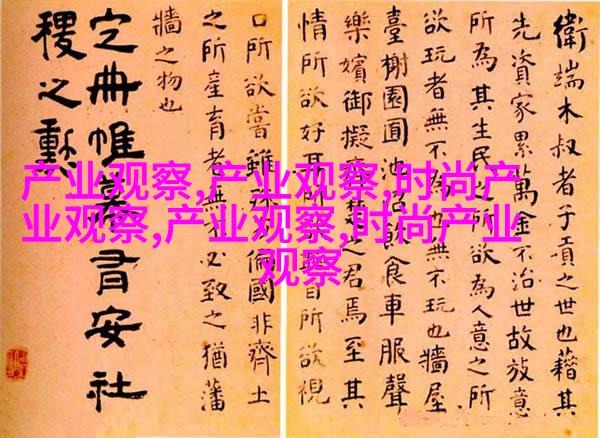 衛端木叔者子貢之世也藉其
先資家累萬金不治世故放意
所為其生民之所欲為人意之所
欲玩者無不為也無不玩也牆屋
臺榭園囿池沼飲食車服聲
樂嬪御擬齊楚之君焉至其
情所欲好耳所欲視
口所欲嘗雖殊偏國非齊土
之所產育者無不必致之猶藩
牆之物也
定冊帷幕有安社
稷之勳
产业观察,产业观察,时尚产
业观察,产业观察,时尚产业
观察